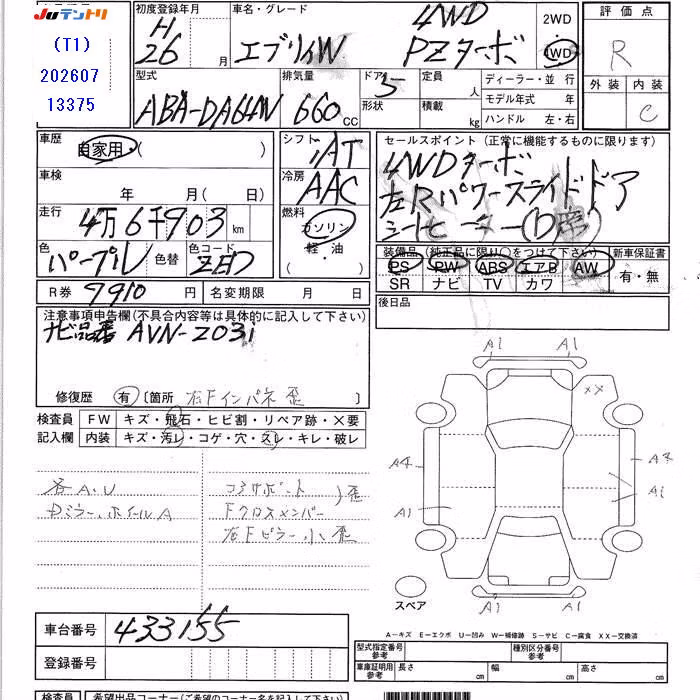 JUテントリ
(T1)
202607
13375
初度登録年月
H
26 月
車名・グレード
エブリィW
4WD
PZターボ
2WD
4WD
評価点
R
外装 内装
C
型式
ABA-DA64W
排気量
660 CC
ドア 5
形状
定員 人
積載 kg
ディーラー・並行
モデル年式 年
ハンドル 左・右
車歴
自家用・( )
車検
年 月( 日)
走行
4万6千903 km
色
パープル
色替
色コード
ZED
シフト
IAT
冷房
AAC
燃料
ガソリン
軽・油
( )
セールスポイント (正常に機能するものに限ります)
4WDターボ
左Rパワースライドドア
シートヒーター(D席)
装備品 (純正品に限り○をつけて下さい)
PS PW ABS エアB AW
SR ナビ TV カワ
新車保証書
有・無
R券 9910 円
名変期限 月 日
後日品
注意事項申告欄(不具合内容等は具体的に記入して下さい)
ナビ品番 AVN-Z03i
修復歴 有 〔箇所 右Fインパネ歪 〕
検査員
記入欄
FW キズ・飛石・ヒビ割・リペア跡・×要
内装 キズ・汚レ・コゲ・穴・スレ・キレ・破レ
各A.U
Dミラー、ホイールA
コアサポート
Fクロスメンバー
)歪
右Fピラー小歪
A1 A1
XX
A4
A1
A1
A1 A1
スペア
A−キズ E−エクボ U−凹み W−補修跡 S−サビ C−腐食 XX−交換済
車台番号 433155
登録番号
型式指定番号
参考
種別区分番号
参考
車庫証明用
参考
長さ cm 幅 cm 高さ cm
検査員
希望出品コーナー(ご希望のコーナー名を記入して下さい)